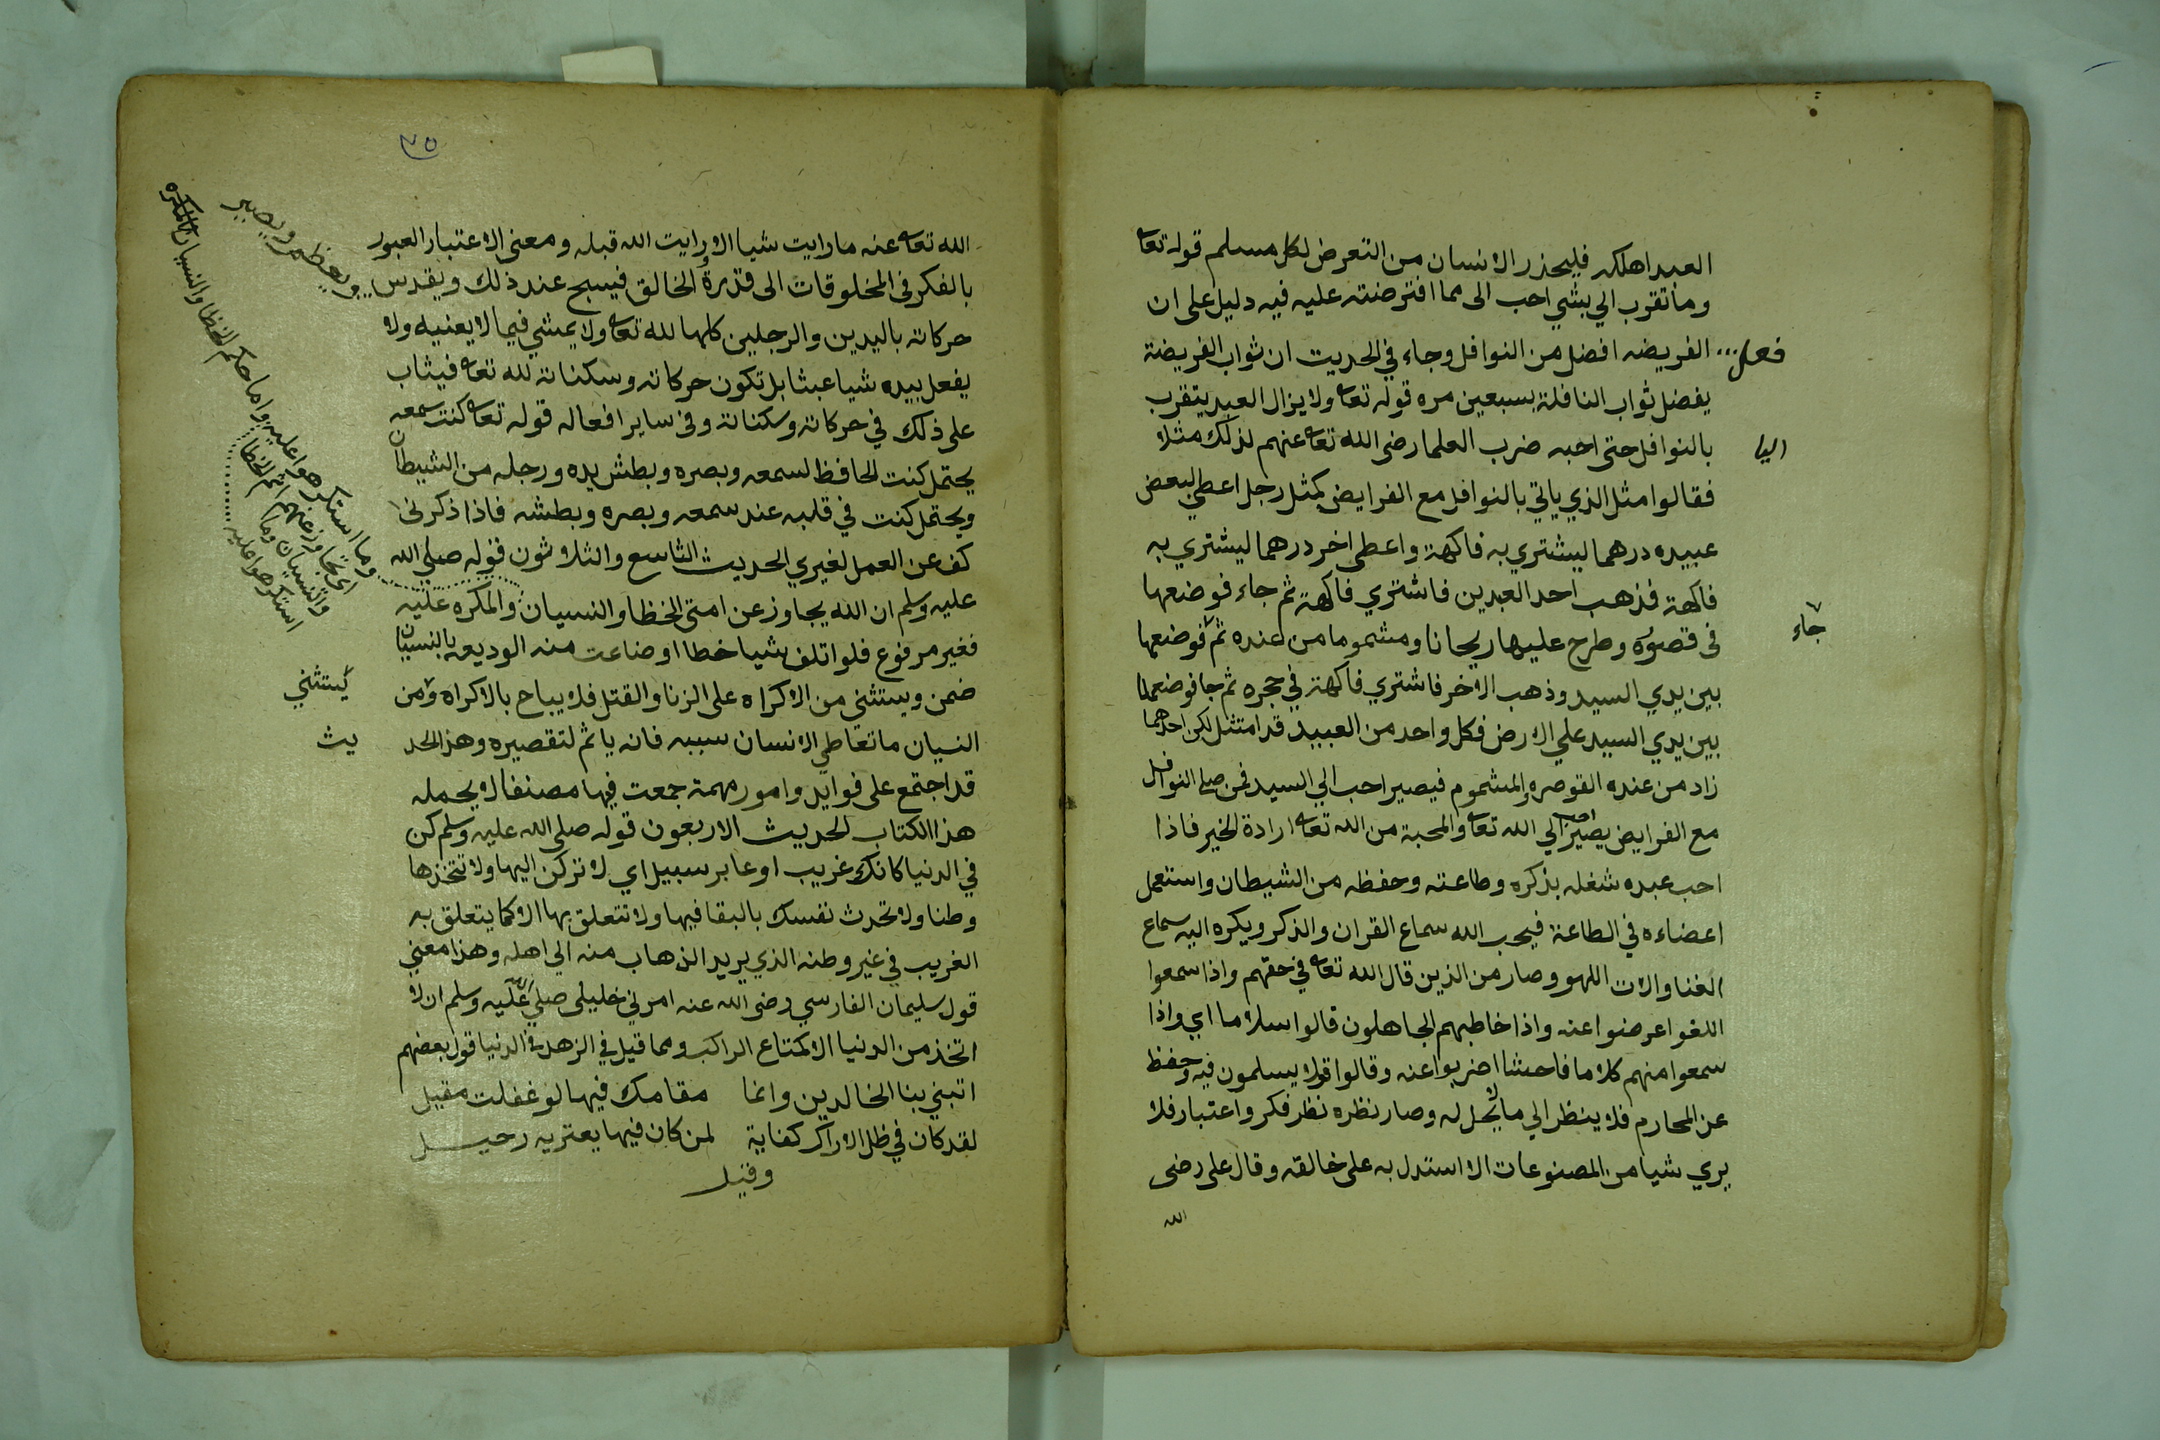 العبد اهلكه فليحذر الانسان من التعرض لكل مسلم قوله تعا
وما تقرب الي بشي احب الى مما افترضته عليه فيه دليل على ان
فعل
الفريضه افضل من النوافل وجاء في الحديث ان ثواب الفريضة
يفضل ثواب النافلة بسبعين مره قوله تعا ولا يزال العبد يتقرب
اليا
بالنوافل حتى احبه ضرب العلما رضى الله تعا عنهم لذلك مثلا
فقالوا مثل الذي ياتي بالنوافل مع الفرايض كمثل رجل اعطي لبعض
عبيده درهما ليشتري به فاكهة واعطى اخر درهما ليشتري به
فاكهة فذهب احد العبدين فاشتري فاكهة ثم جاء فوضعها
جاء
فى قصوره وطرح عليها ريحانا ومشموما من عنده ثم فوضعها
بين يدي السيد وذهب الاخر فاشتري فاكهة في حجره ثم جا فوضعها
بين يدي السيد علي الارض فكل واحد من العبيد قد امتثل لكن احدهما
زاد من عنده القوصره والمشموم فيصير احب الي السيد فمن صلي النوافل
مع الفرايض يصير احب الي الله تعا والمحبة من الله تعا ارادة الخير فاذا
احب عبده شغله بذكره وطاعته وحفظه من الشيطان واستعمل
اعضاءه في الطاعة فيحب الله سماع القران والذكر ويكره اليه سماع
الغنا والات اللهو وصار من الذين قال الله تعا في حقهم واذا سمعوا
اللغوا عرضوا عنه واذا خاطبهم الجاهلون قالوا سلاما اي واذا
سمعوا منهم كلاما فاحشا اضربوا عنه وقالوا قولا يسلمون فيه وحفظ
عن المحارم فلا ينظر الي ما لا يحل له وصار نظره نظر فكر واعتبار فلا
يري شيا من المصنوعات الا استدل به على خالقه وقال على رضى
الله
٧٥
الله تعا عنه ما رايت شيا الا ورايت الله قبله ومعنى الاعتبار العبور
بالفكر في المخلوقات الى قدرة الخالق فيسبح عند ذلك ويقدس
ويعظم ويصير
حركاته باليدين والرجلين كلها لله تعا ولا يمشي فيما لا يعنيه ولا
يفعل بيده شيا عبثا بل تكون حركاته وسكناته لله تعا فيثاب
على ذلك في حركاته وسكناته وفى ساير افعاله قوله تعا كنت سمعه
يحتمل كنت الحافظ لسمعه وبصره وبطش يده ورجله من الشيطان
ويحتمل كنت في قلبه عند سمعه وبصره وبطشه فاذا ذكرنى
كف عن العمل لغيري الحديث التاسع والثلاثون قوله صلى الله
عليه وسلم ان الله يجاوز عن امتى الخطا والنسيان والمكره عليه
وما استكرهوا عليه واما حكم الخطا والنسيان والمكره
اي تجاوز عنهم اثم الخطا
والنسيان وما
استكرهوا عليه
فغير مرفوع فلو اتلف شيا خطا او ضاعت منه الوديعه بالنسيان
ضمن ويستثنى من الاكراه على الزنا والقتل فلا يباح بالاكراه ومن
يستثني
النسيان ما تعاطي الانسان سببه فانه ياثم لتقصيره وهذا الحد
يث
قد اجتمع على فوايد وامور مهمة جمعت فيها مصنفا لا يحمله
هذا الكتاب الحديث الاربعون قوله صلى الله عليه وسلم كن
في الدنيا كانك غريب او عابر سبيل اي لا تركن اليها ولا تتخذها
وطنا ولا تحدث نفسك بالبقا فيها ولا تتعلق بها الا كما يتعلق به
الغريب في غير وطنه الذي يريد الذهاب منه الي اهله وهذا معني
قول سليمان الفارسي رضى الله عنه امرني خليلى صلي الله عليه وسلم ان لا
اتخذ من الدنيا الا كمتاع الراكب ومما قيل في الزهد في الدنيا قول بعضهم
اتبني بنا الخالدين وانما مقامك فيها لو عقلت مقيل
لقد كان في ظل الاراك كفاية لمن كان فيها يعتريه رحيل
وقيل